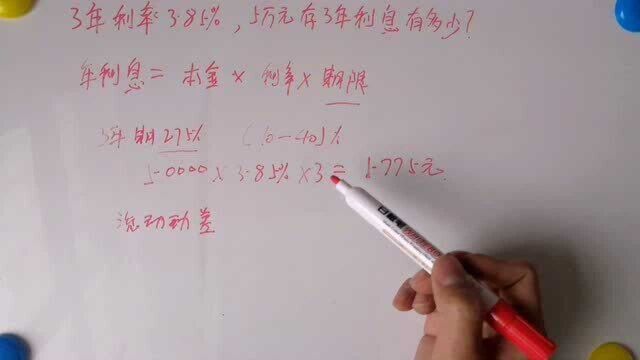 3年利率3.85%,5万元存3年利息有多少?
年利息=本金×利率×期限
3年期2.75% (10-40)%
50000×3.85%×3=5775元
流动动差